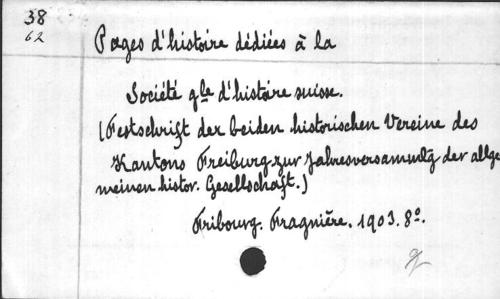 38
62
Pages d'histoire dédiées à la
Société gle d'histoire suisse.
(Festschrift der beiden historischen Vereine des
Kantons Freiburg zur Jahresversammlg der allge
meinen histor. Gesellschaft.)
Fribourg. Fragnière. 1903. 8º.